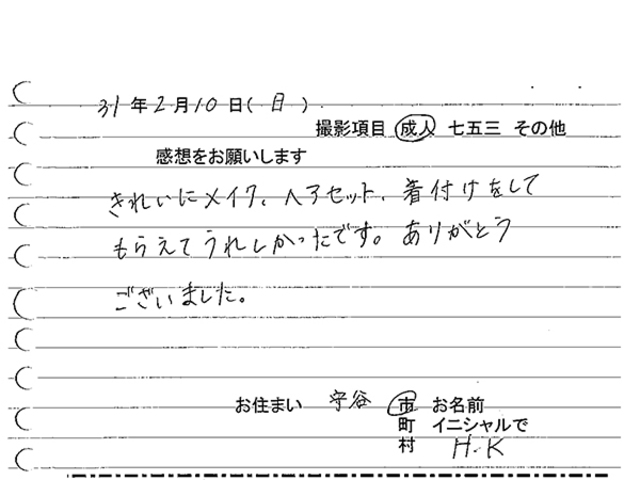 31年2月10日(日)
撮影項目 成人 七五三 その他
感想をお願いします
きれいにメイク、ヘアセット、着付けをして
もらえてうれしかったです。ありがとう
ございました。
お住まい 守谷 市 お名前
町 イニシャルで
村 H.K